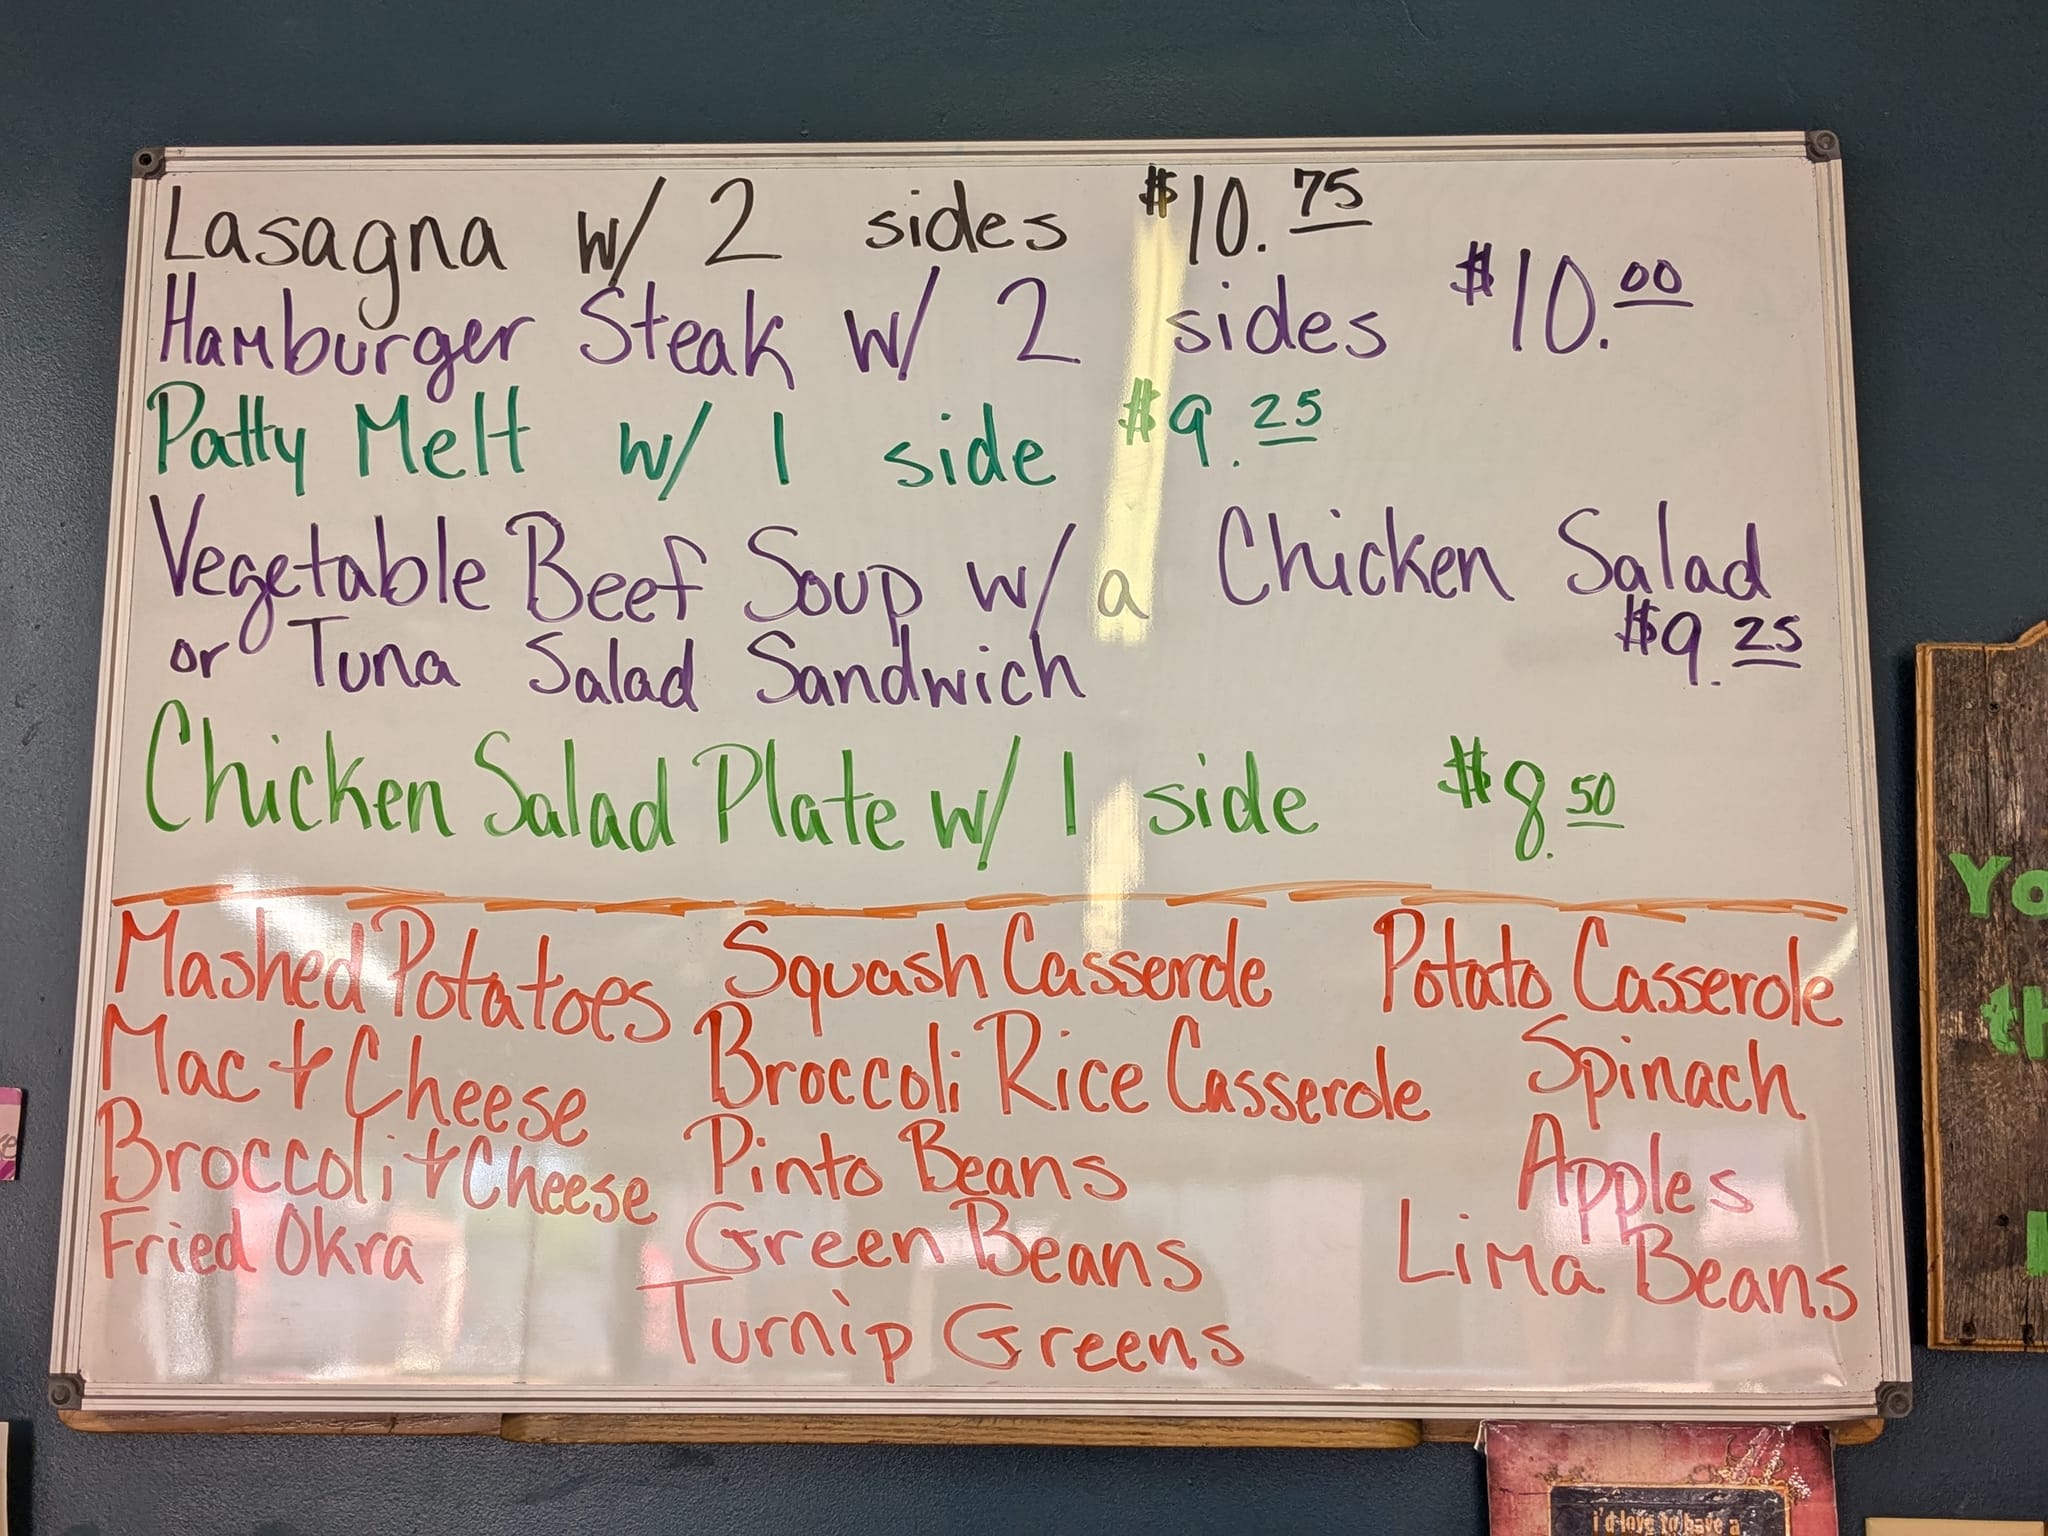 Lasagna w/ 2 sides $10.75
Hamburger Steak w/ 2 sides $10.00
Patty Melt w/ 1 side $9.25
Vegetable Beef Soup w/ a Chicken Salad
or Tuna Salad Sandwich $9.25
Chicken Salad Plate w/ 1 side $8.50
Mashed Potatoes
Mac + Cheese
Broccoli + Cheese
Fried Okra
Squash Casserole
Broccoli Rice Casserole
Pinto Beans
Green Beans
Turnip Greens
Potato Casserole
Spinach
Apples
Lima Beans
i'd love to have a